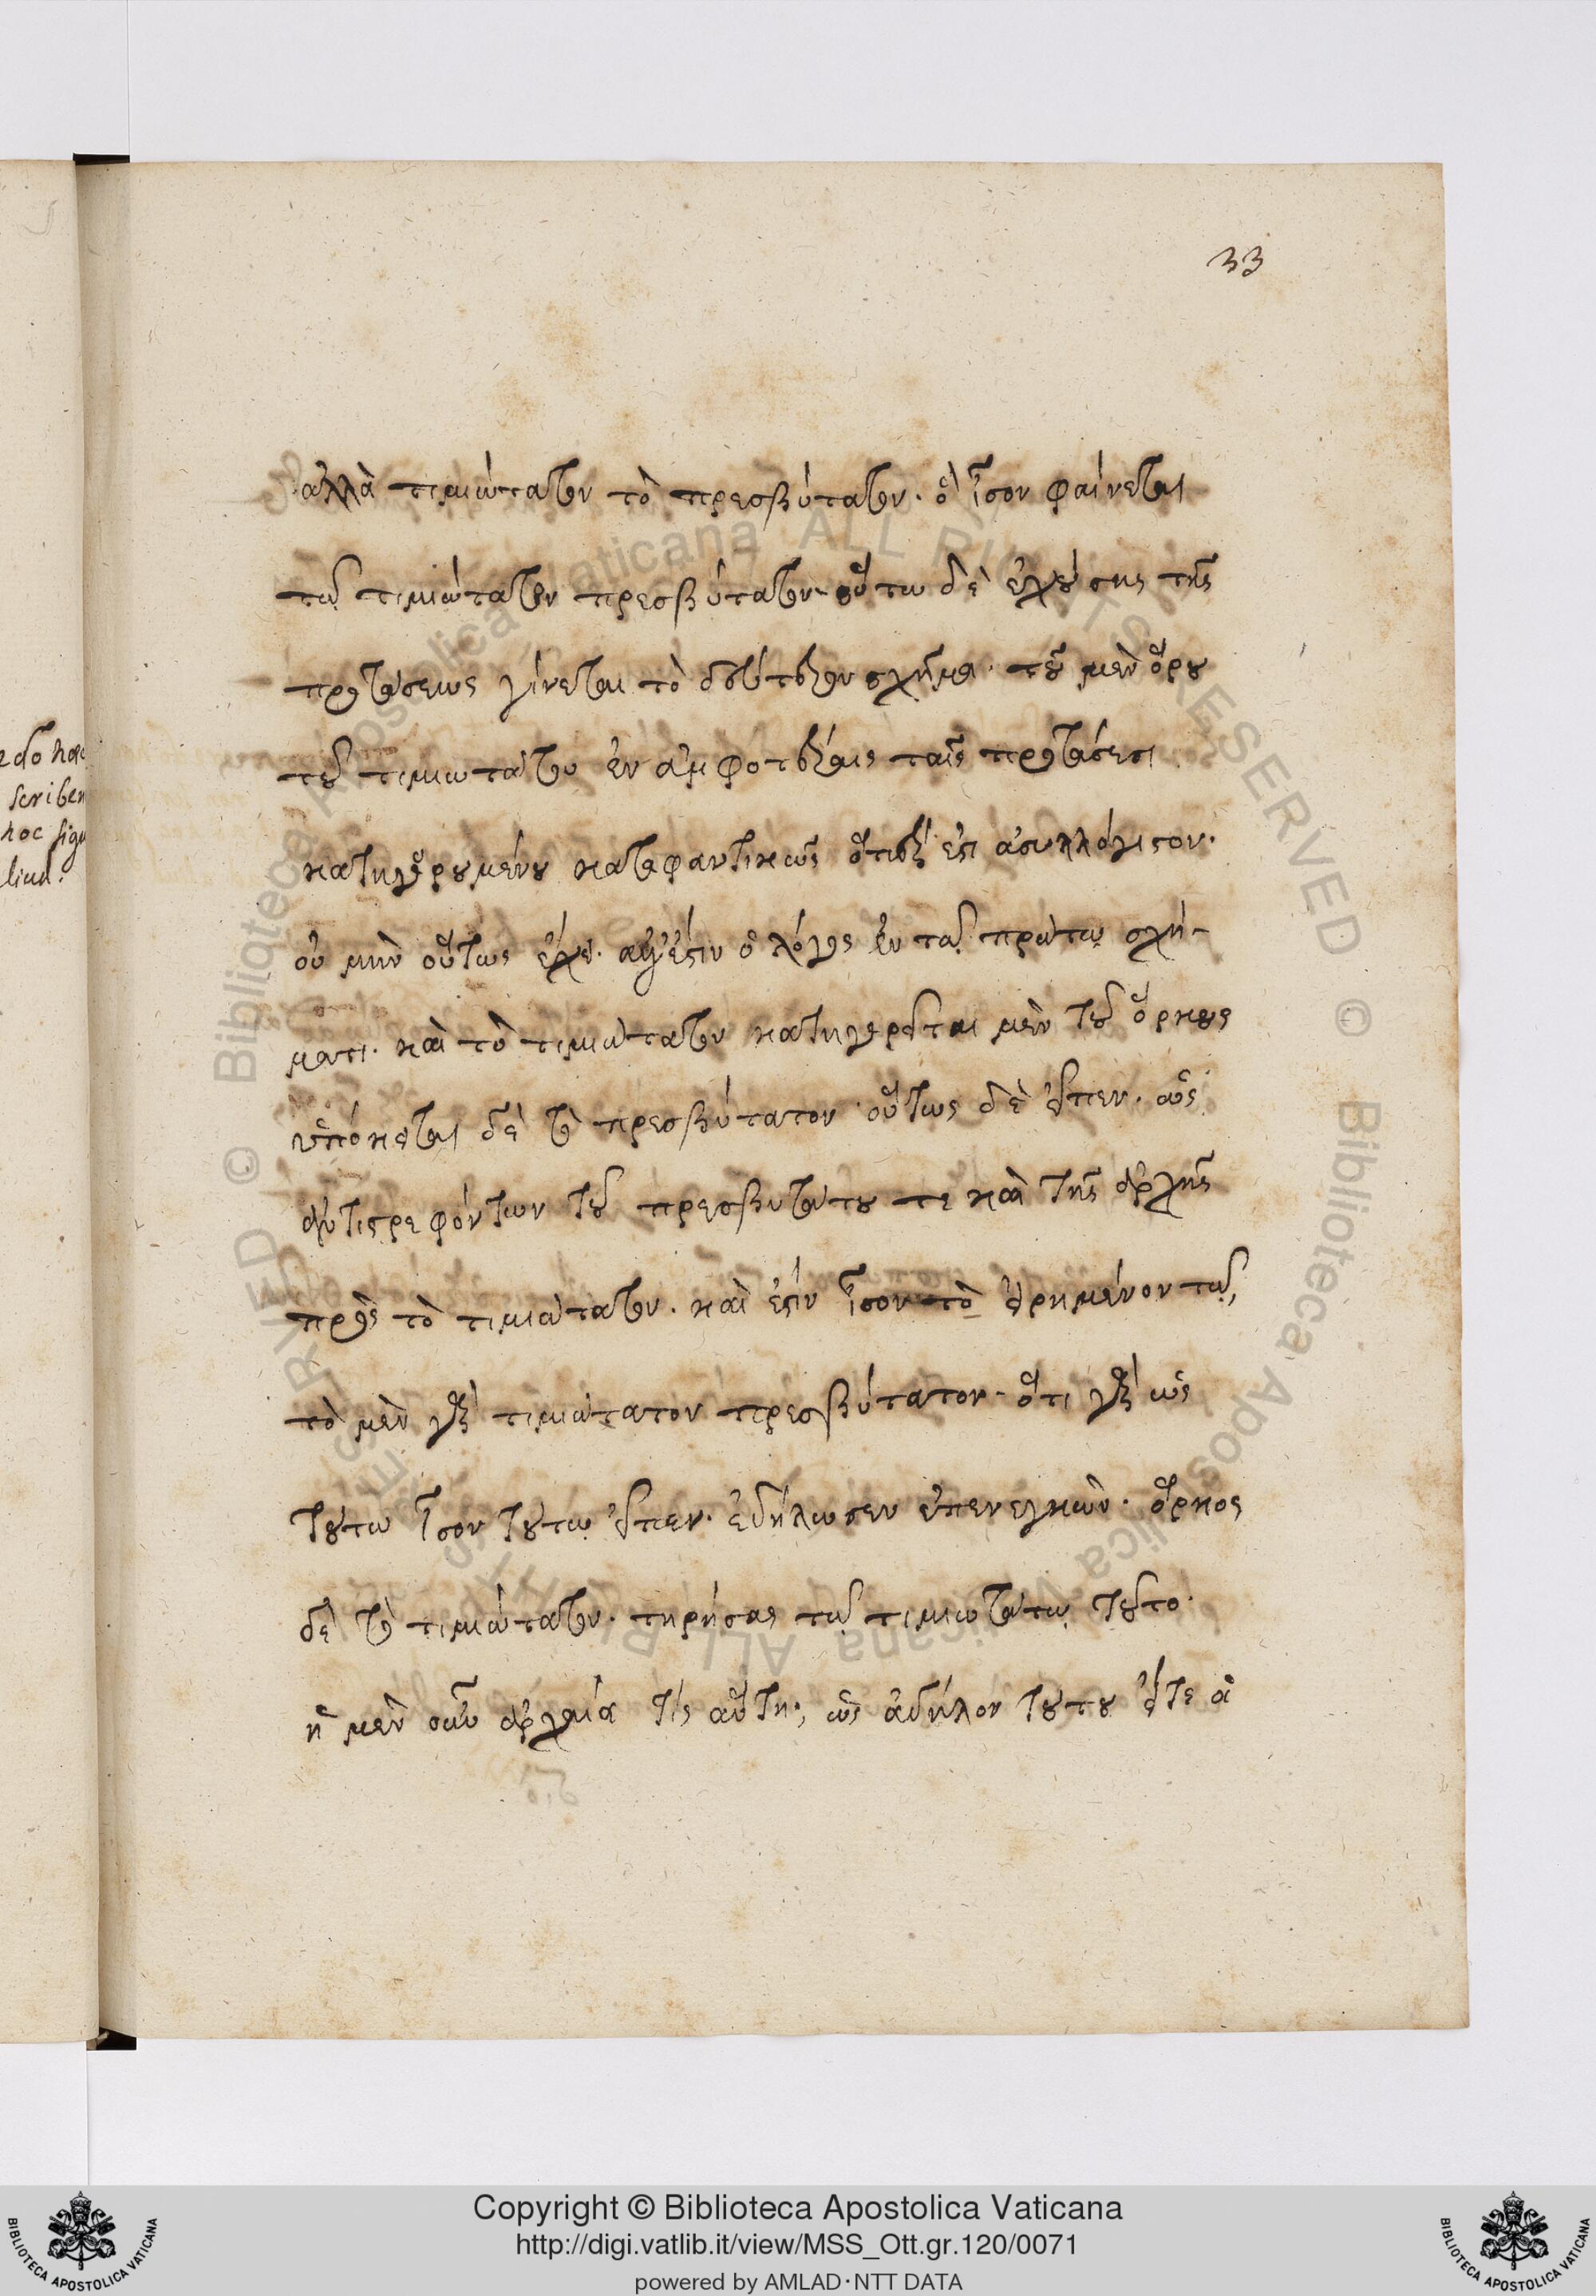 33
ἀλλὰ τιμιώτατον τὸ πρεσβύτατον. ὃ ἴσον φαίνεται
τῷ τιμιώτατον πρεσβύτατον. οὕτω δὲ ἐχούσης τῆς
προτάσεως γίνεται τὸ δεύτερον σχῆμα. τοῦ μὲν ὅρου
τοῦ τιμιωτάτου ἐν ἀμφοτέραις ταῖς προτάσεσι
κατηγορουμένου καταφαντικῶς ὅπερ ἐστὶ ἀσυλλόγιστον.
οὐ μὴν οὕτως ἔχει. ἀλλ' ἔστιν ὁ λόγος ἐν τῷ πρώτῳ σχή-
ματι. καὶ τὸ τιμιώτατον κατηγορεῖται μὲν τοῦ ὅρκους
ὑπόκειται δὲ τὸ πρεσβύτατον. οὕτως δὲ εἶπεν. ὡς
ἀντιστρεφόντων τοῦ πρεσβυτάτου τε καὶ τῆς ἀρχῆς
πρὸς τὸ τιμιώτατον. καὶ ἔστιν ἴσον τὸ εἰρημένον τῷ,
τὸ μὲν γὰρ τιμιώτατον πρεσβύτατον. ὅτι γὰρ ὡς
τούτω ἴσον τούτῳ εἶπεν. ἐδήλωσεν ἐπενεγκὼν. ὅρκος
δὲ τὸ τιμιώτατον. τηρήσας τῷ τιμιωτάτῳ τοῦτο.
ἡ μὲν οὖν ἀρχαία τίς αὕτη; ὡς ἀδήλον τούτου εἴτε ἀ
edo haec
scriben
hoc sign
liud.
Copyright © Biblioteca Apostolica Vaticana
http://digi.vatlib.it/view/MSS_Ott.gr.120/0071
powered by AMLAD·NTT DATA
BIBLIOTECA APOSTOLICA VATICANA
BIBLIOTECA APOSTOLICA VATICANA